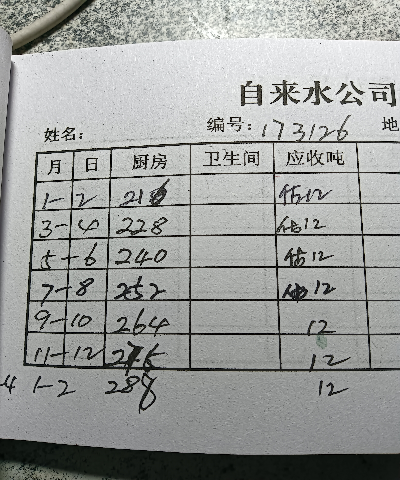 自来水公司
姓名： 编号：173126 地
月 日 厨房 卫生间 应收吨
1-2 216 估12
3-4 228 估12
5-6 240 估12
7-8 252 估12
9-10 264 12
11-12 276 12
4 1-2 288 12